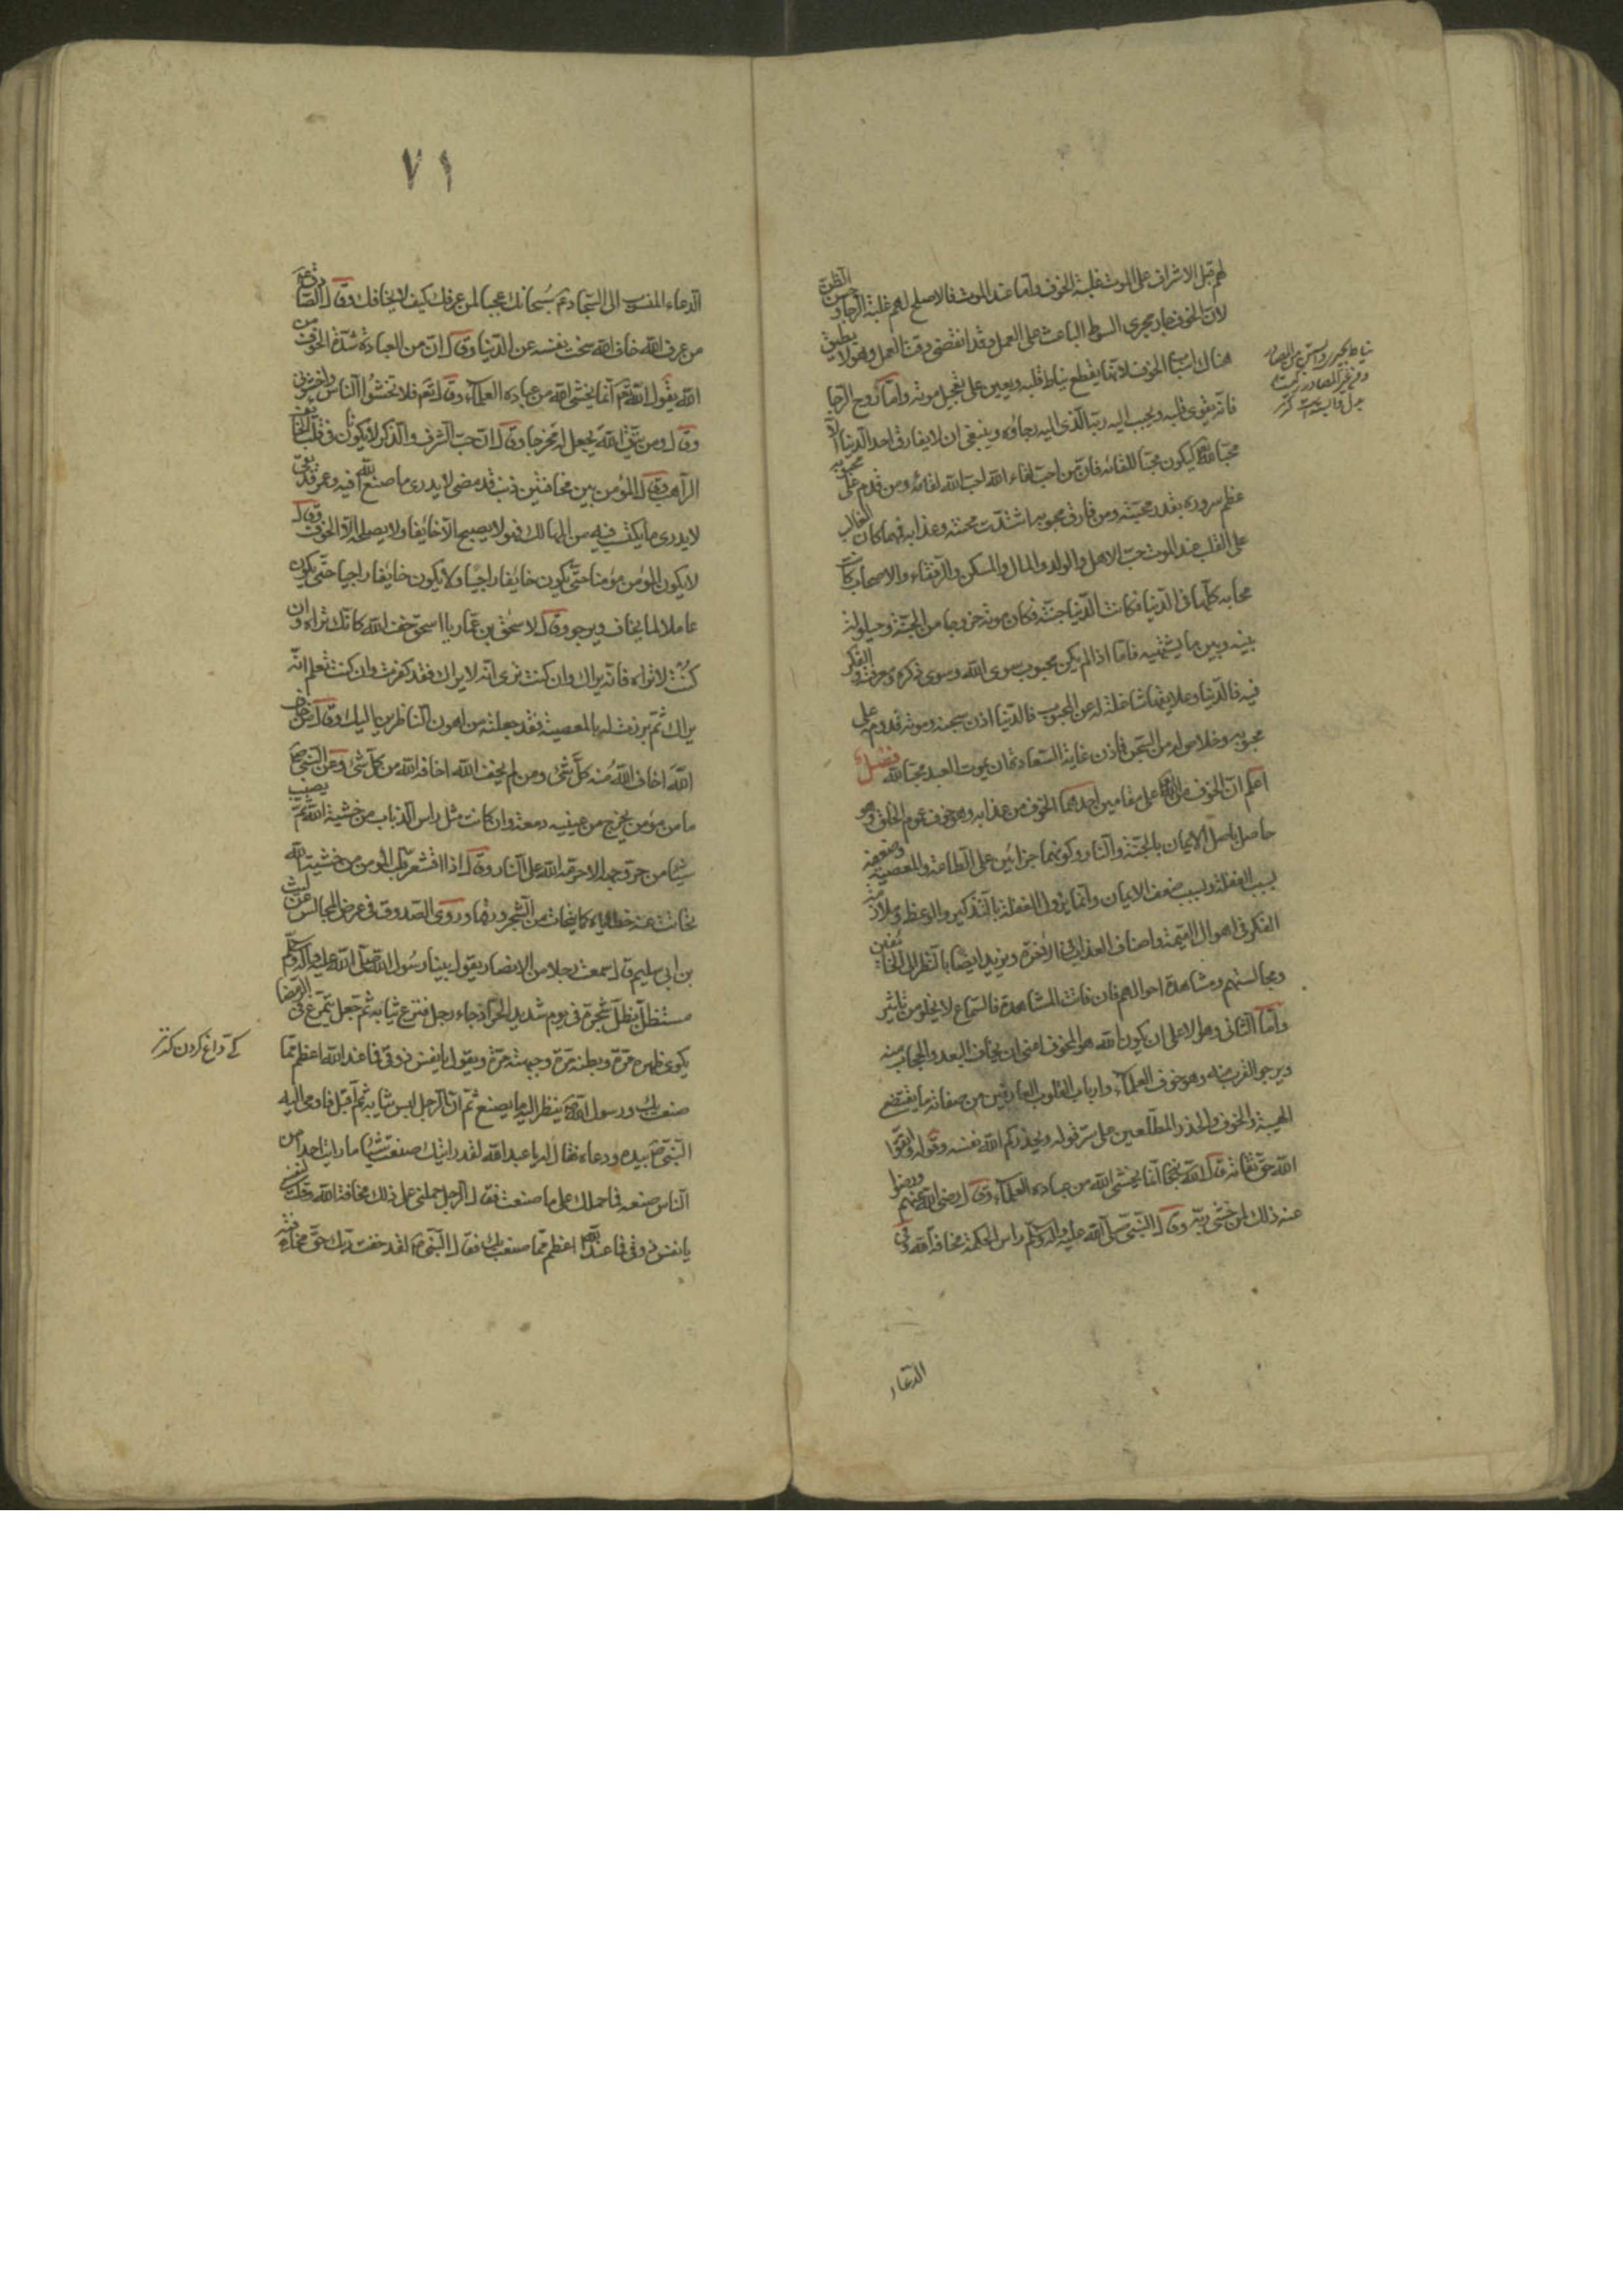 لهم قبل الاشراف على الموت غلبة الخوف وامّا عند الموت فالاصلح لهم غلبة الرجا وحسن الظنّ
لانّ الخوف جار مجرى السوط الباعث على العمل وقد انقضى وقت العمل وهو لا يطيق
هناك اسباب الخوف لانّها يقطع نياط قلبه ويعين على تعجيل موته وامّا روح الرّجا
فانّه يقوى قلبه ويحبب اليه ربّه الّذى اليه رجاؤه وينبغى ان لا يفارق احد الدّنيا الّا
محبّا لله ليكون محبّا للقائه فانّ من احبّ لقاء الله احبّ الله لقائه ومن قدم على محبوبه
عظم سروره بقدر محبّته ومن فارق محبوبه اشتدّت محنته وعذابه فمهما كان الغالب
على القلب عند الموت حبّ الاهل والولد والمال والمسكن والرّفقاء والاصحاب كانت
محابه كلّها فى الدّنيا فكانت الدّنيا جنّته فكان موته خروجا من الجنّة وحيلولة
بينه وبين ما يشتهيه فامّا اذا لم يكن محبوب سوى الله وسوى ذكره ومعرفته والفكر
فيه فالدّنيا وعلايقها شاغلة له عن المحبوب فالدّنيا اذن سجنه وموته قدوم على
محبوبه وخلاص له من السّجن فاذن غاية السّعادة ان يموت العبد محبّا لله فصل
اعلم انّ الخوف من الله على مقامين احدهما الخوف من عذابه وهو خوف عموم الخلق وهو
حاصل باصل الايمان بالجنّة والنّار وكونهما جزائين على الطّاعة والمعصية وضعفه
بسبب الغفلة وبسبب ضعف الايمان وانّما يزول الغفلة بالتّذكير والوعظ وملازمة
الفكر فى اهوال القيمة واصناف العذاب فى الآخرة ويزيد ايضا بالنّظر الى الخائفين
ومجالستهم ومشاهدة احوالهم فان فاتت المشاهدة فالسّماع لا يخلو من تاثير
وامّا الثّانى وهو الاعلى ان يكون الله هو المخوف اعنى ان يخاف البعد والحجاب منه
ويرجو القرب منه وهو خوف العلماء وارباب القلوب العارفين من صفاته ما يقتضى
الهيبة والخوف والحذر المطّلعين على سرّ قوله ويحذركم الله نفسه وقوله اتّقوا
الله حقّ تقاته قال الله تعالى انّما يخشى الله من عباده العلماء وقال رضى الله عنهم ورضوا
عنه ذلك لمن خشى ربّه وقال النّبىّ صلّى الله عليه وآله وسلّم راس الحكمة مخافة الله وفى
الدّعاء
نياط
٧١
الدّعاء المنسوب الى السّجاد ع سبحانك عجبا لمن عرفك كيف لا يخافك وقال الصّادق ع
من عرف الله خاف الله سخت نفسه عن الدّنيا وقال انّ من العبادة شدّة الخوف من
الله يقول الله تعم انّما يخشى الله من عباده العلماء وقال تعم فلا تخشوا النّاس واخشونى
وقال ومن يتّق الله يجعل له مخرجا وقال انّ حبّ الشّرف والذّكر لا يكونان فى قلب الخائف
الرّاهب وقال المؤمن بين مخافتين ذنب قد مضى لا يدرى ما صنع الله فيه وعمر قد بقى
لا يدرى ما يكتسب فيه من المهالك فهو لا يصبح الّا خايفا ولا يصلحه الّا الخوف وقال
لا يكون المؤمن مؤمنا حتّى يكون خايفا راجيا ولا يكون خايفا راجيا حتّى يكون
عاملا لما يخاف ويرجو وقال لاسحق بن عمّار يا اسحق خف الله كانّك تراه وان
كنت لا تراه فانّه يراك وان كنت ترى انّه لا يراك فقد كفرت وان كنت تعلم انّه
يراك ثمّ برزت له بالمعصية فقد جعلته من اهون النّاظرين اليك وقال من خاف
الله اخاف الله منه كلّ شئ ومن لم يخف الله اخافه الله من كلّ شئ وعن النّبىّ ص
ما من مؤمن يخرج من عينيه دمعة وان كانت مثل راس الذّباب من خشية الله ثمّ يصيب
شيئا من حرّ وجهه الا حرّمه الله على النّار وقال اذا اقشعر قلب المؤمن من خشية الله
تحاتت عنه خطاياه كما يتحات من الشّجر ورقها وروى الصّدوق فى عرض المجالس عن ليث
بن ابى سليم قال سمعت رجلا من الانصار يقول بينا رسول الله صلّى الله عليه وآله وسلّم
مستظلّ بظلّ شجرة فى يوم شديد الحرّ اذ جاء رجل فنزع ثيابه ثمّ جعل يتمرّغ فى الرّمضا
يكوى ظهره مرّة وبطنه مرّة وجبهته مرّة ويقول يا نفس ذوقى فما عند الله اعظم ممّا
صنعت بك ورسول الله ص ينظر اليه ما يصنع ثمّ انّ الرّجل لبس ثيابه ثمّ اقبل فاومى اليه
النّبىّ ص بيده ودعاه فقال له يا عبد الله لقد رايتك صنعت شيئا ما رايت احدا من
النّاس صنعه فما حملك على ما صنعت فقال الرّجل حملنى على ذلك مخافة الله وقلت لنفسى
يا نفس ذوقى فما عند الله اعظم ممّا صنعت بك فقال النّبىّ ص لقد خفت ربّك حقّ مخافته
كى داغ كردن كنز